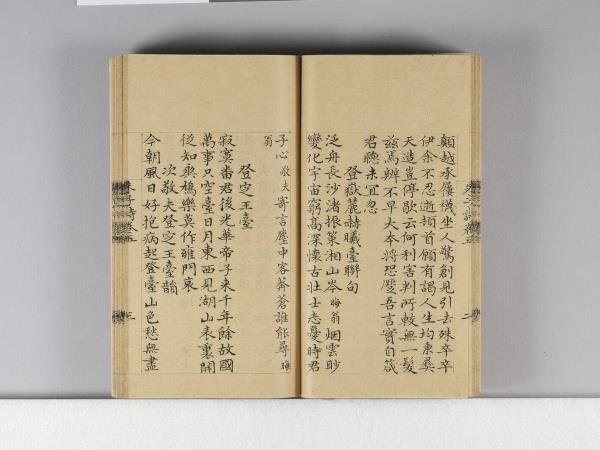 顛越承履襪坐人驚創見引去殊卒卒
伊余不忍逝頓首願有謁人生均秉彝
天造豈停歇云何利害判所較無一髮
茲焉辨不早大本將恐蹷吾言實自箴
君聽未宜忽
登嶽麓赫曦臺聯句
泛舟長沙渚振策湘山岑晦翁烟雲眇
變化宇宙窮高深懷古壯士志憂時君
子心敬夫寄言塵中客莽蒼誰能尋晦
翁
登定王臺
寂寞番君後光華帝子來千年餘故國
萬事只空臺日月東西見湖山表裏開
從知爽鳩樂莫作雍門哀
次敬夫登定王臺韻
今朝風日好抱病起登臺山色愁無盡